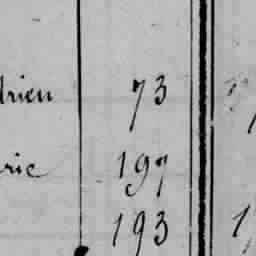 drien 73
ric 197
193 1